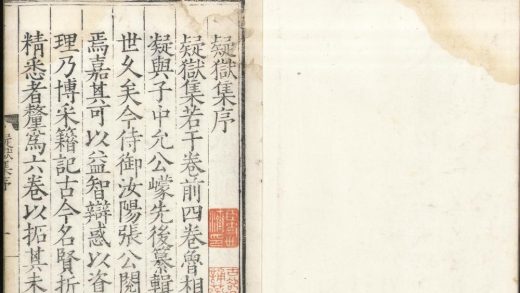 疑獄集序
疑獄集若干卷前四卷魯相
凝與子中允公㠓先後纂輯
世久矣今侍御汝陽張公閱
焉嘉其可以益智辯惑以資
理乃博采籍記古今名賢折
精悉者釐爲六卷以拓其未